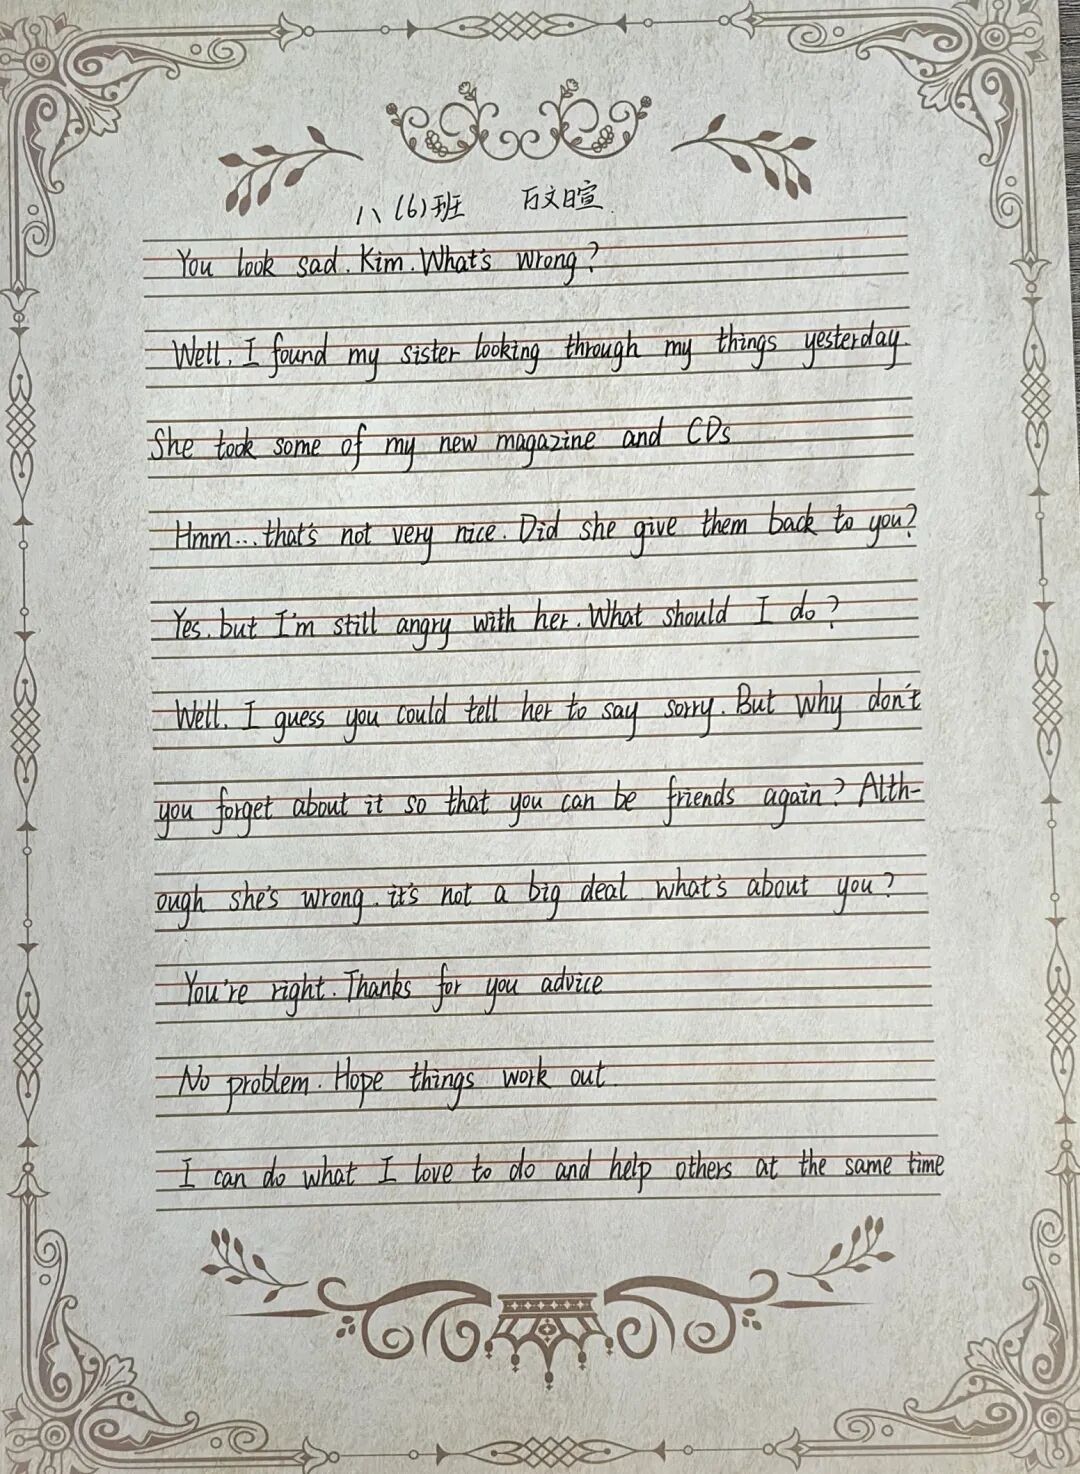 八(6)班 万文暄
You look sad. Kim. What's wrong?
Well, I found my sister looking through my things yesterday.
She took some of my new magazine and CDs
Hmm...that's not very nice. Did she give them back to you?
Yes, but I'm still angry with her. What should I do?
Well, I guess you could tell her to say sorry. But why don't
you forget about it so that you can be friends again? Alth-
ough she's wrong, it's not a big deal what's about you?
You're right. Thanks for you advice
No problem. Hope things work out.
I can do what I love to do and help others at the same time